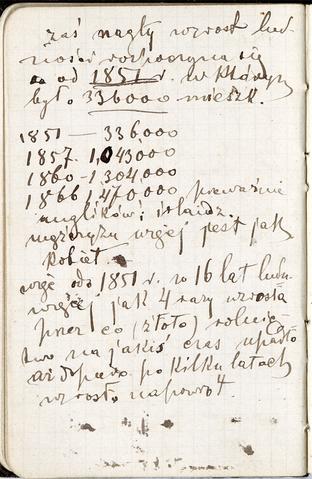 zaś nagły wzrost lud-
ności rozpoczyna się
od 1851 r. w którym
było 336000 mieszk.
1851 — 336000
1857. 1,043000
1860 – 1304000
1866 1,470000 przeważnie
anglików i irlandz.
mężczyzn więcej jest jak
kobiet.
więc od 1851 r. w 16 lat ludn.
więcej jak 4 razy wzrosła
przez co (złoto) rolnic-
two na jakiś czas upadło
aż dopiero po kilku latach
wzrosło napowrót.